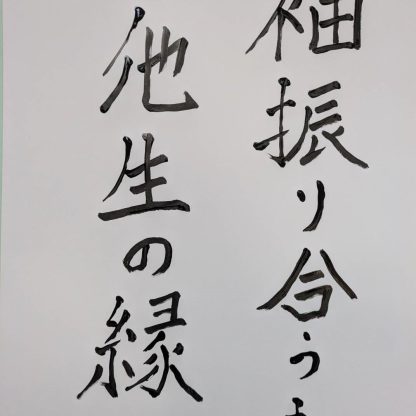 袖振り合う
他生の縁